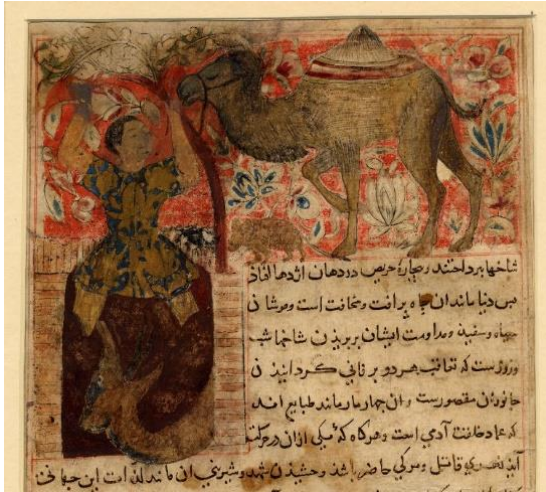 شاخها برداختند و بیچارۀ حریص در دهان اژدها افتاذ
بس دنیا ماند ان چاه بر افت و مخافت است و موشان
سیاه و سفید و مداومت ایشان بر بریذن شاخها شب
و روزست که تعاقب هر دو بر فانی کردانیذن
جانوران مقصورست و ان جهار مار مانند طبایع اند
که عماد خلقت آدمی است و هرکاه که یکی ازان در حرکت
آید زهری قاتل و مرکی حاضر باشذ و چشیذن شهد و شیرینی ان مانند لذات این جهانی